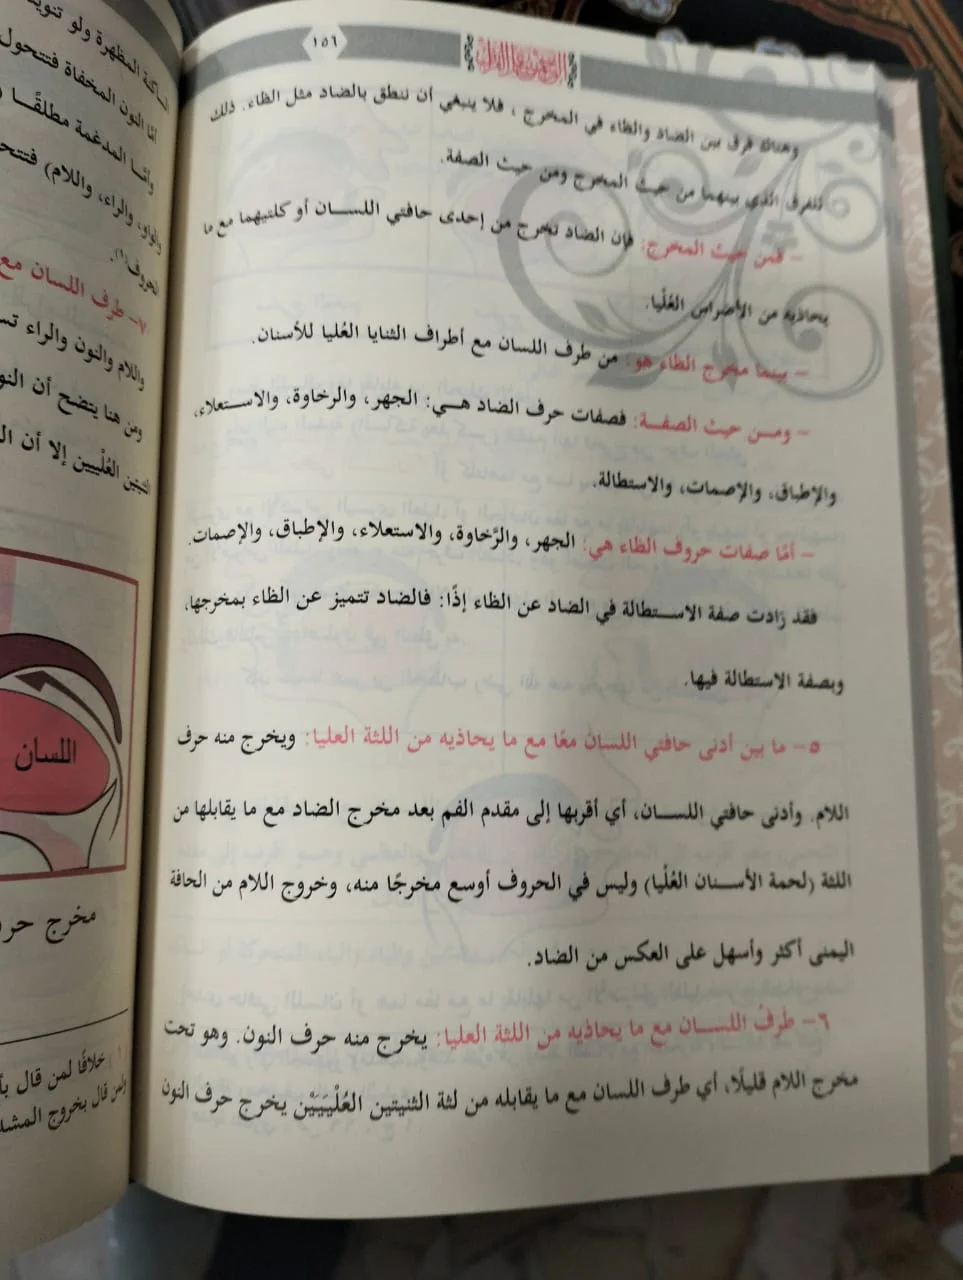 ١٥٦
وهناك فرق بين الضاد والظاء في المخرج ، فلا ينبغي أن ننطق بالضاد مثل الظاء. ذلك
للفرق الذي بينهما من حيث المخرج ومن حيث الصفة.
- فمن حيث المخرج: فإن الضاد تخرج من إحدى حافتي اللسان أو كلتيهما مع ما
يحاذيه من الأضراس العُليا.
- بينما مخرج الظاء هو: من طرف اللسان مع أطراف الثنايا العُليا للأسنان.
- ومن حيث الصفة: فصفات حرف الضاد هي: الجهر، والرخاوة، والاستعلاء،
والإطباق، والإصمات، والاستطالة.
- أمّا صفات حروف الظاء هي: الجهر، والرَّخاوة، والاستعلاء، والإطباق، والإصمات.
فقد زادت صفة الاستطالة في الضاد عن الظاء إذًا: فالضاد تتميز عن الظاء بمخرجها،
وبصفة الاستطالة فيها.
٥- ما بين أدنى حافتي اللسان معًا مع ما يحاذيه من اللثة العليا: ويخرج منه حرف
اللام. وأدنى حافتي اللسان، أي أقربها إلى مقدم الفم بعد مخرج الضاد مع ما يقابلها من
اللثة (لحمة الأسنان العُليا) وليس في الحروف أوسع مخرجًا منه، وخروج اللام من الحافة
اليمنى أكثر وأسهل على العكس من الضاد.
٦- طرف اللسان مع ما يحاذيه من اللثة العليا: يخرج منه حرف النون. وهو تحت
مخرج اللام قليلًا، أي طرف اللسان مع ما يقابله من لثة الثنيتين العُلْيَيَيْن يخرج حرف النون
الساكنة المظهرة ولو تنوينًا
أمّا النون المخفاة فتتحول
وأمّا المدغمة مطلقًا
والواو، والراء، واللام) فتتح
الحروف(١).
٧- طرف اللسان مع
واللام والنون والراء تس
ومن هنا يتضح أن النو
الثنيتين العُلْييين إلا أن ال
اللسان
مخرج حر
خلافًا لمن قال بأ
ولمن قال بخروج المشد